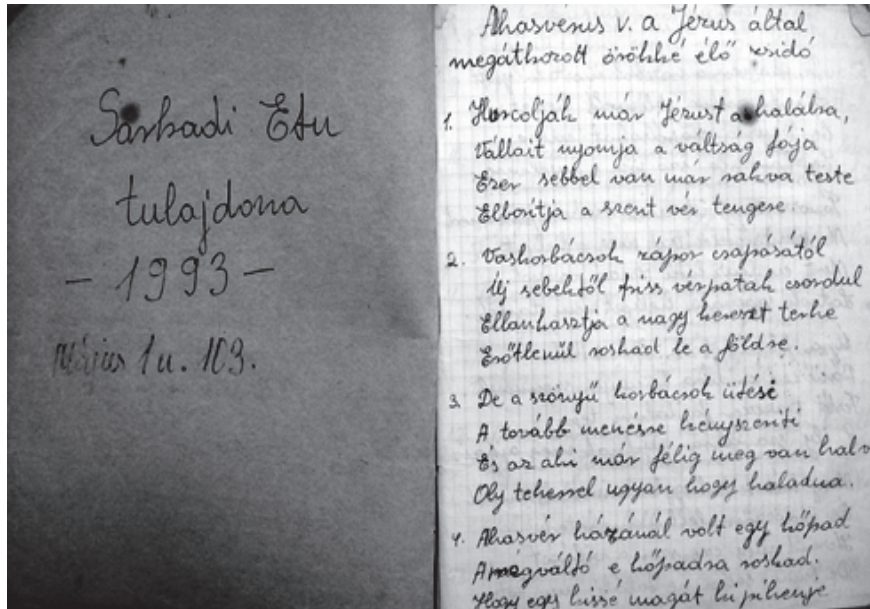 Sarkadi Etu
tulajdona
- 1993 -
Május 1 u. 103.
Ahasvérus v. a Jézus által
megátkozott örökké élő zsidó
1. Hurcolják már Jézust a halálba,
Vállait nyomja a váltság fája
Ezer sebbel van már rakva teste
Elborítja a szent vér tengere
2. Vaskorbácsok zápor csapásától
Új sebektől friss vérpatak csordul
Ellankasztja a nagy kereszt terhe
Erőtlenül roskad le a földre.
3. De a szörnyű korbácsok ütése
A tovább menésre kényszeríti
És az aki már félig meg van halv
Oly teherrel ugyan hogy haladna.
4. Ahasvér házánál volt egy kőpad
A megváltó e kőpadra roskad.
Hogy egy kissé magát kipihenje